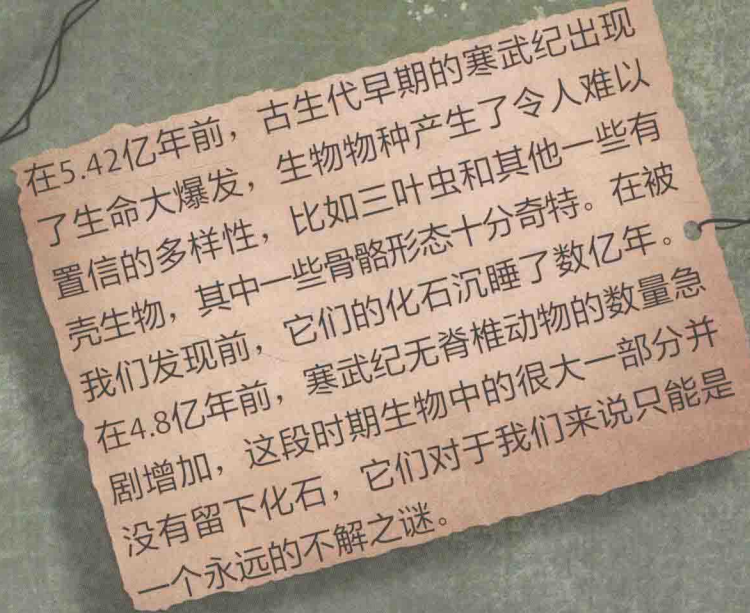 在5.42亿年前，古生代早期的寒武纪出现
了生命大爆发，生物物种产生了令人难以
置信的多样性，比如三叶虫和其他一些有
壳生物，其中一些骨骼形态十分奇特。在被
我们发现前，它们的化石沉睡了数亿年。
在4.8亿年前，寒武纪无脊椎动物的数量急
剧增加，这段时期生物中的很大一部分并
没有留下化石，它们对于我们来说只能是
一个永远的不解之谜。